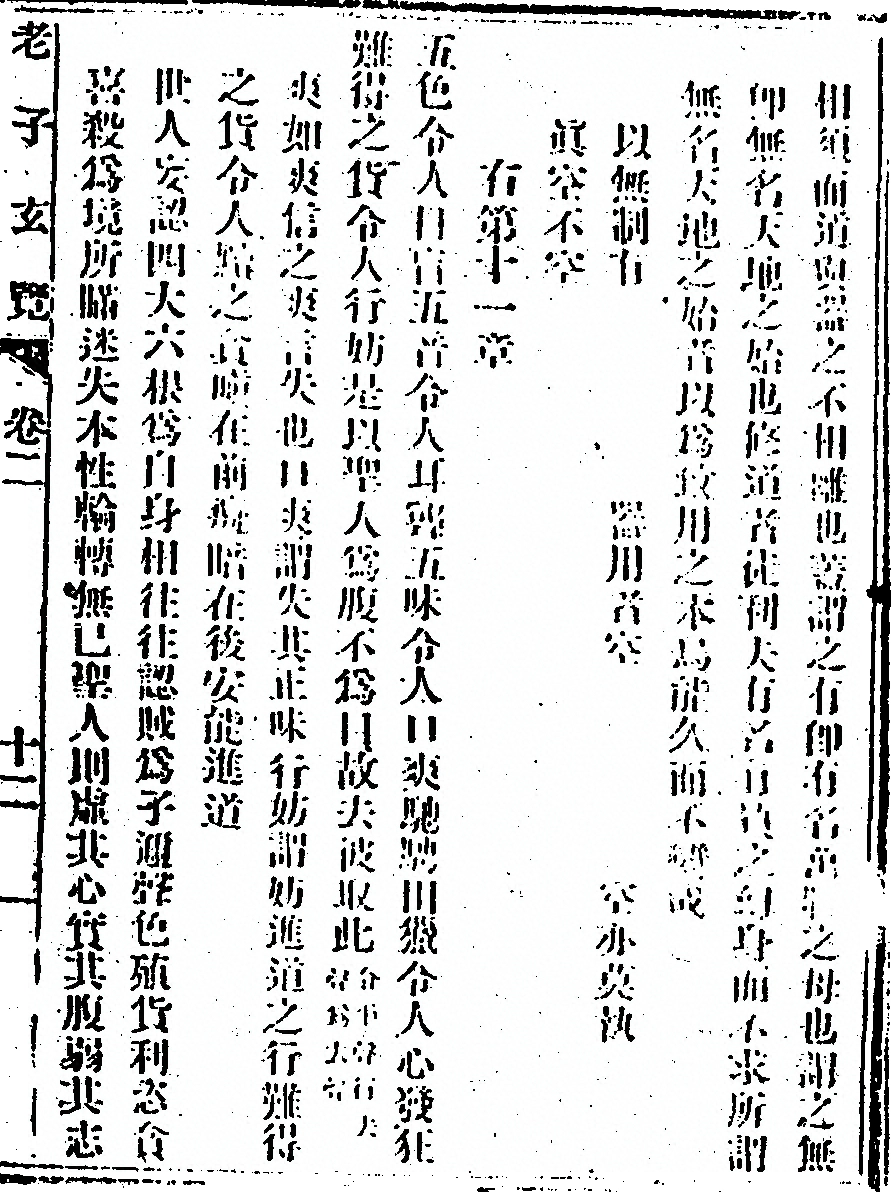 相須而道與器之不相離也蓋謂之有卽有名萬物之母也謂之無
卽無名天地之始也修道者徒利夫有名有質之幻身而不求所謂
無名天地之始者以爲致用之本烏能久而不變哉
以無制有　器用者空　空亦莫執
眞空不空
右第十一章
五色令人目盲五音令人耳聾五味令人口爽馳騁田獵令人心發狂
難得之貨令人行妨是以聖人爲腹不爲目故去彼取此
爽如爽信之爽言失也口爽謂失其正味行妨謂妨進道之行難得
之貨令人貪之貪 在前癡暗在後安能進道
世人妄認四大六根爲自身相往往認賊爲子通聲色殖貨利恣貪
喜殺爲境所瞞迷失本性輪轉無已聖人則虛其心實其腹弱其志
老子玄覽　卷二　十二